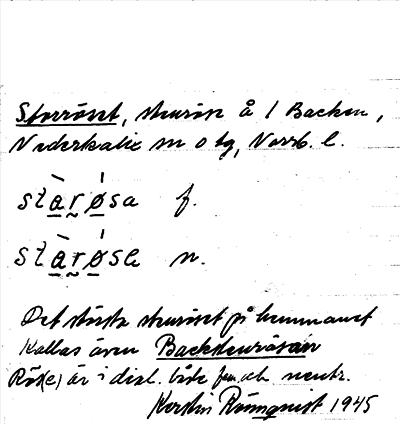 Storröset, stenröse å 1 Backen,
Nederkalix sn o tg, Norrb. l.
stàrǿsa f.
stàrǿse n.
Det största stenröset på hemmanet
Kallas även Backstenrösan
Rös(e) är i dial. både fem. och neutr.
Kerstin Rönnqvist 1945